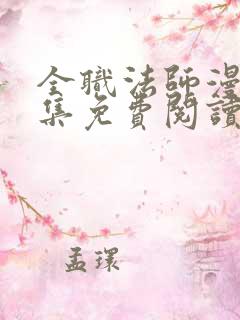 全職法師漫
集免費閱讀
孟環